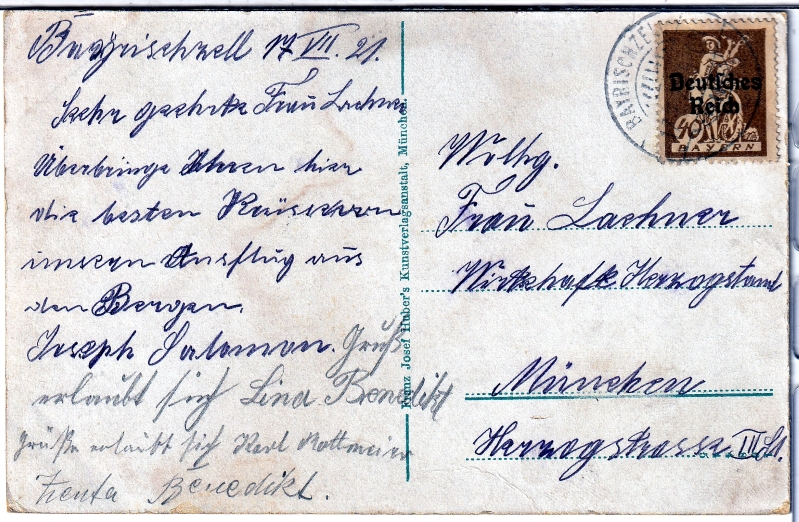 Bayrischzell 17 VII. 21.
Sehr geehrte Frau Lachner
Überbringe Ihnen hier
die besten von
unsern Ausflug aus
den Bergen.
Joseph Salomon. Gruß
erlaubt sich Lina Benedikt
Grüße erlaubt sich Karl
Zenta Benedikt.
Franz Josef Huber's Kunstverlagsanstalt, München.
BAYRISCHZELL
Deutsches
Reich
40
BAYERN
Wolhg.
Frau Lachner
Wirtshaft Herzogstand
München
Herzogstrasse III St.